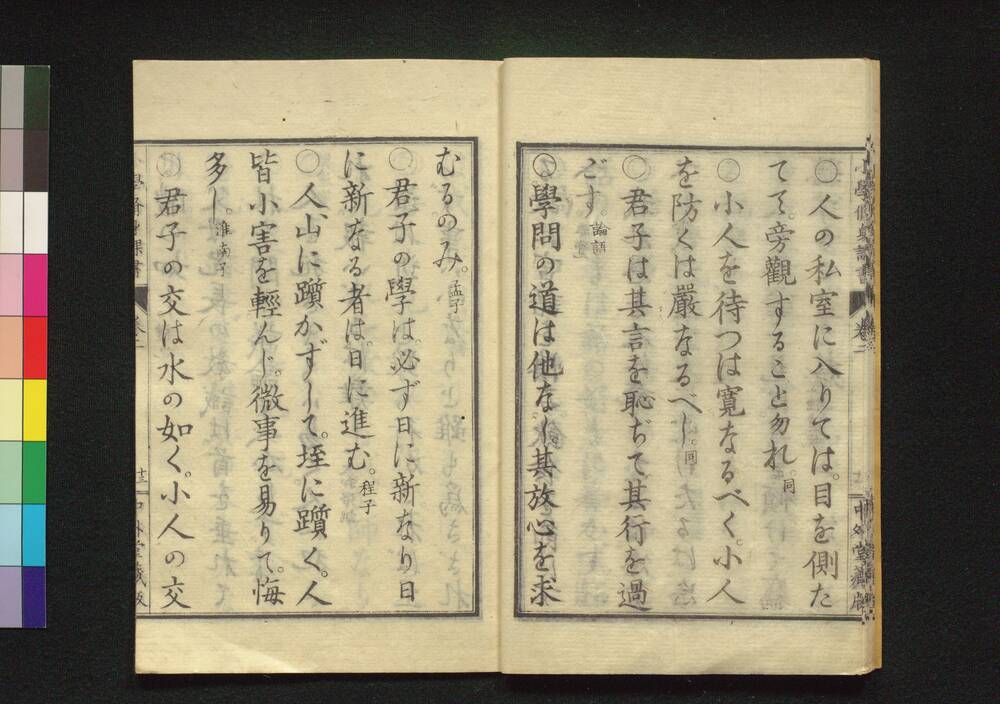 ○人の私室に入りては。目を側た
てて。旁觀すること勿れ。同
○小人を待つは寛なるべく。小人
を防くは嚴なるべし。同
○君子は其言を恥ぢて其行を過
ごす。論語
○學問の道は他なし。其放心を求
むるのみ。孟子
○君子の學は必ず日に新なり日
に新なる者は。日に進む。程子
○人山に躓かずして。垤に躓く。人
皆小害を輕んじ。微事を易りて。悔
多し。淮南子
○君子の交は水の如く。小人の交
小學修身課書
卷二
中外堂藏版
小學修身課書
卷二
十三
中外堂藏版